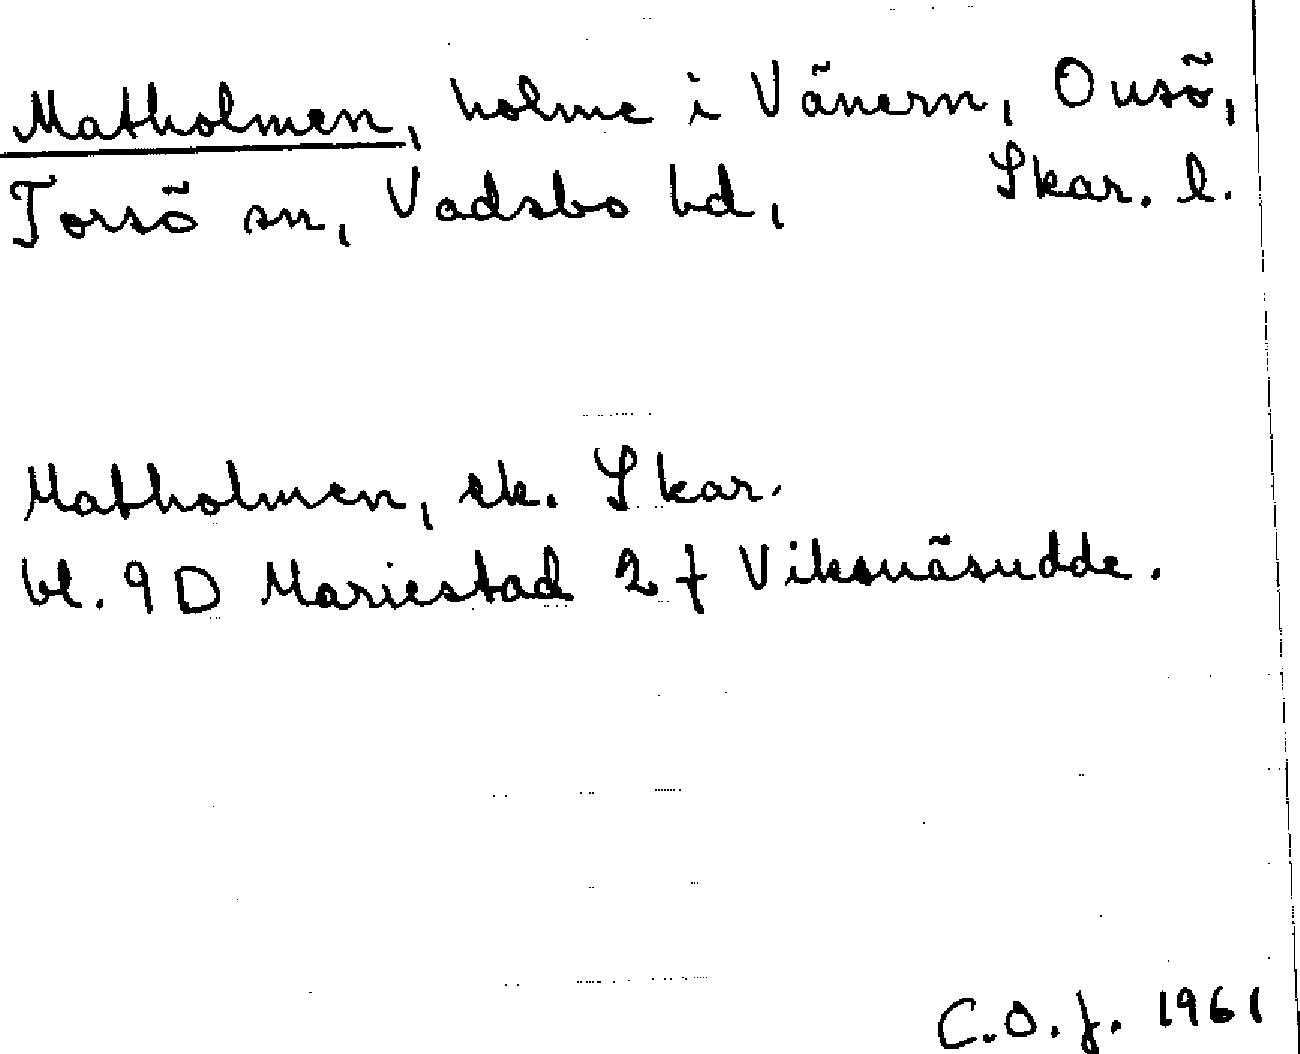 Matholmen, holme i Vänern, Onsö,
Torsö sn, Vadsbo hd, Skar. l.
Matholmen, ek. Skar.
bl. 9D Mariestad 2 f Viksnäsudde.
C.O.f. 1961